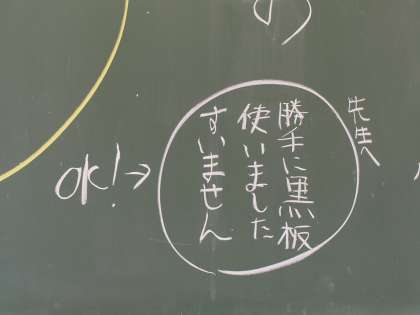 先生へ
勝手に黒板
使いました
すいません
OK!→